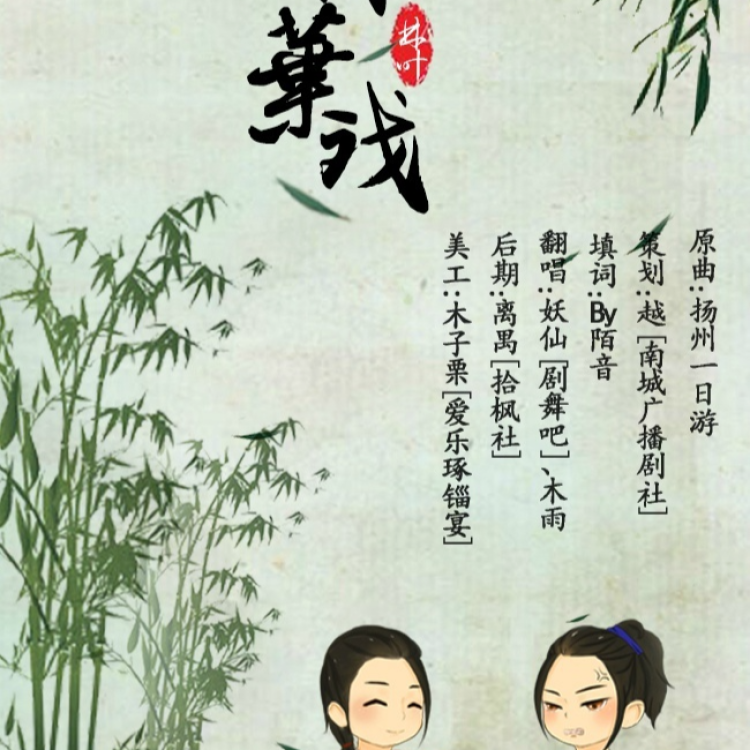 葉戏
林叶
原曲:扬州一日游
策划:越[南城广播剧社]
填词:By陌音
翻唱:妖仙[剧舞吧]、木雨
后期:离禺[拾枫社]
美工:木子栗[爱乐琢锱宴]